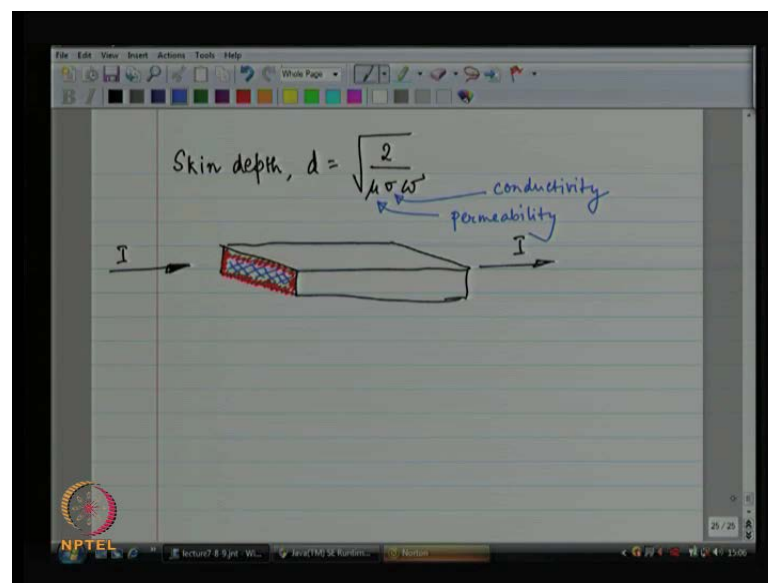 File Edit View Insert Actions Tools Help
Whole Page
B I
Skin depth, d = √(2/μσω)
conductivity
permeability
I
I
25 / 25
NPTEL
lecture7-8-9.jnt - Wi...
Java(TM) SE Runtim...
Norton
15:06